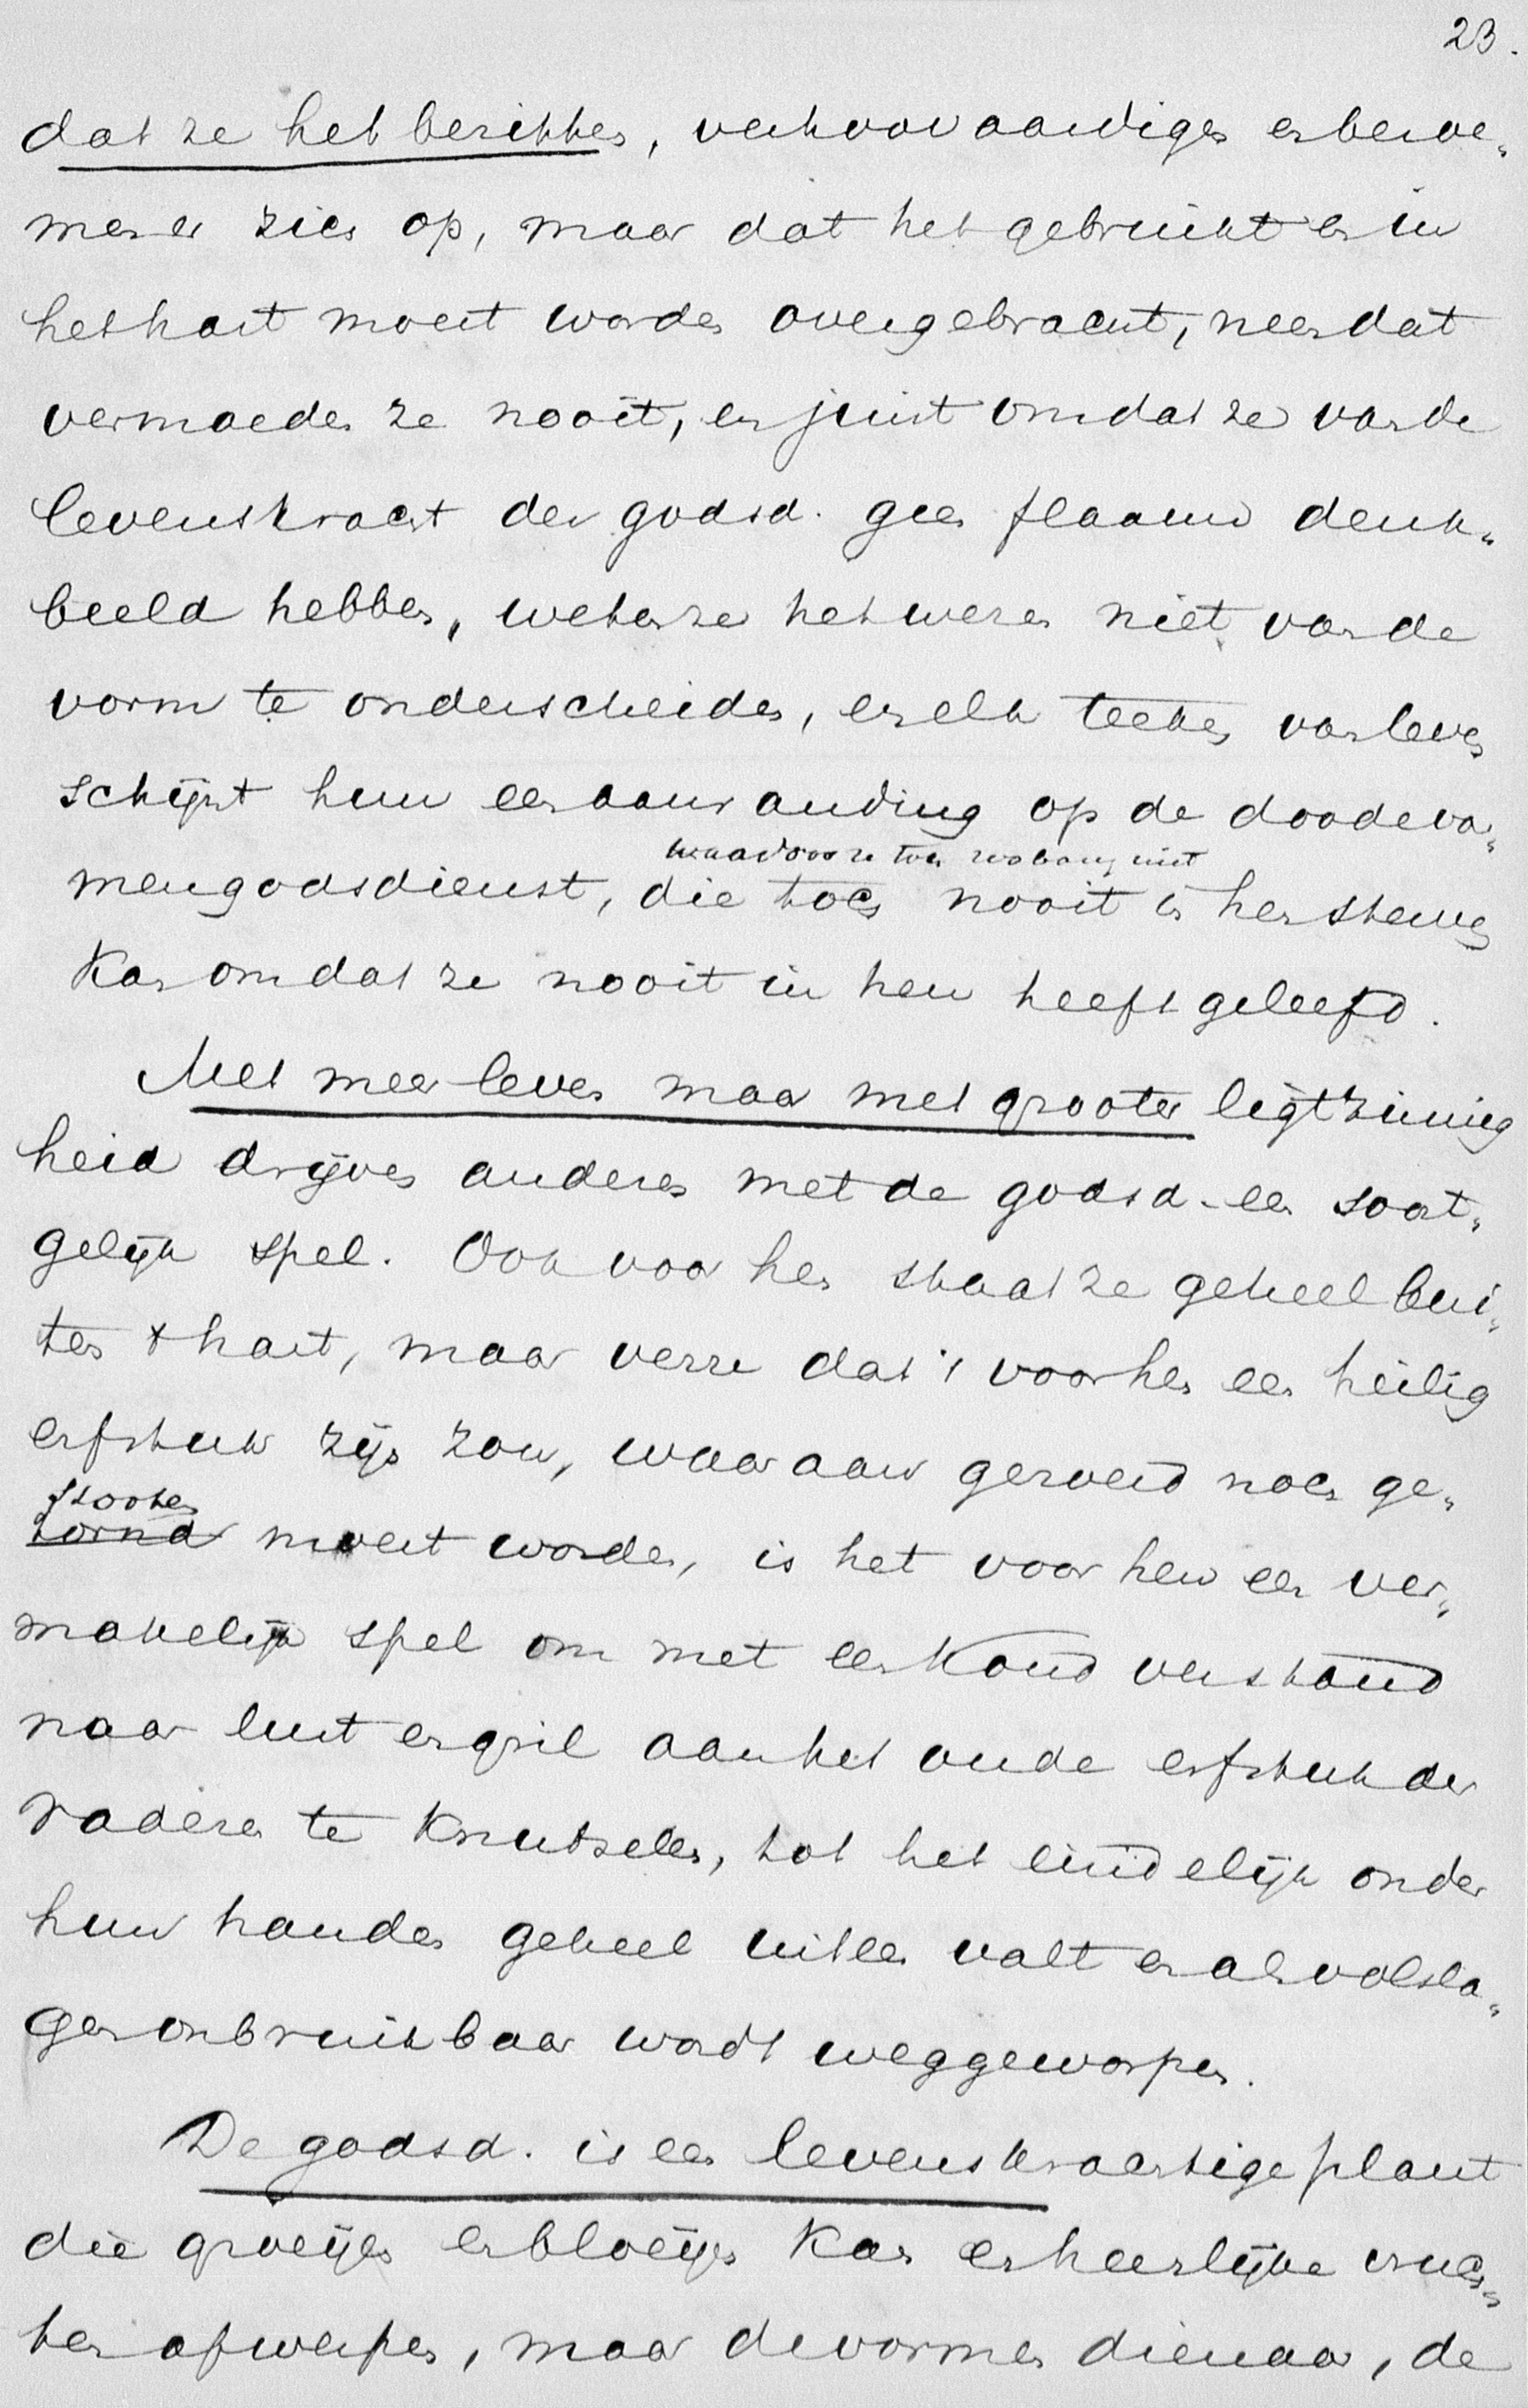 23.
dat ze het bezitten, verhoovaardigen en beroe„
men er zich op, maar dat het gebruikt en in
het hart moest worden overgebracht, neen dat
vermoeden ze nooit, en juist omdat ze van de
levenskracht der godsd. geen flaauw denk„
beeld hebben, weten ze het wezen niet van de
vorm te onderscheiden, en elk teeken van leven
schijnt hun een aanranding op de doode vor„
waardoor ze toch zoolang niet
mengodsdienst, die toch nooit in hen sterven
kan omdat ze nooit in hen heeft geleefd.
Met meer leven maar met grooter ligtzinnig
heid drijven anderen met de godsd. een soort„
gelijk spel. Ook voor hen staat ze geheel bui„
ten 't hart, maar verre dat 't voor hen een heilig
erfstuk zijn zou, waaraan geroerd noch ge„
stooten
tornd moest worden, is het voor hen een ver„
makelijk spel om met een koud verstand
naar lust en gril aan het oude erfstuk der
vaderen te knutselen, tot het eindelijk onder
hun handen geheel uiteen valt en als volsla„
gen onbruikbaar wordt weggeworpen.
De godsd. is een levenskrachtige plant
die groeijen en bloeijen kan en heerlijke vruch„
ten afwerpen, maar de vormendienaar, de